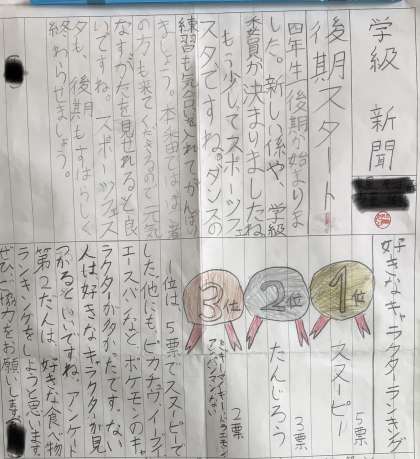 学級 新聞
後期スタート!
四年生後期が始まりま
した。新しい係や、学級
委員が決まりましたね
もう少しでスポーツフェ
スタですね。ダンスの
練習も気合いを入れてがんば
りましょう。本番では
の方も来てくださるので元気
なすがたを見せれると良
いですね。スポーツフェス
タも、後期もすばらしく
終わらせましょう。
好きなキャラクターランキング
1位 スヌーピー 5票
2位 たんじろう 3票
3位
2票
1位は5票でスヌーピーで
した。他にも、ピカチュウ、イーブイ
エースバーンなどポケモンのキャ
ラクターが多かったです。ない
人は好きなキャラクターが見
つかるといいですね。アンケート
第2だんは、好きな食べ物
ランキングをしようと思います。
ぜひご協力をお願いします